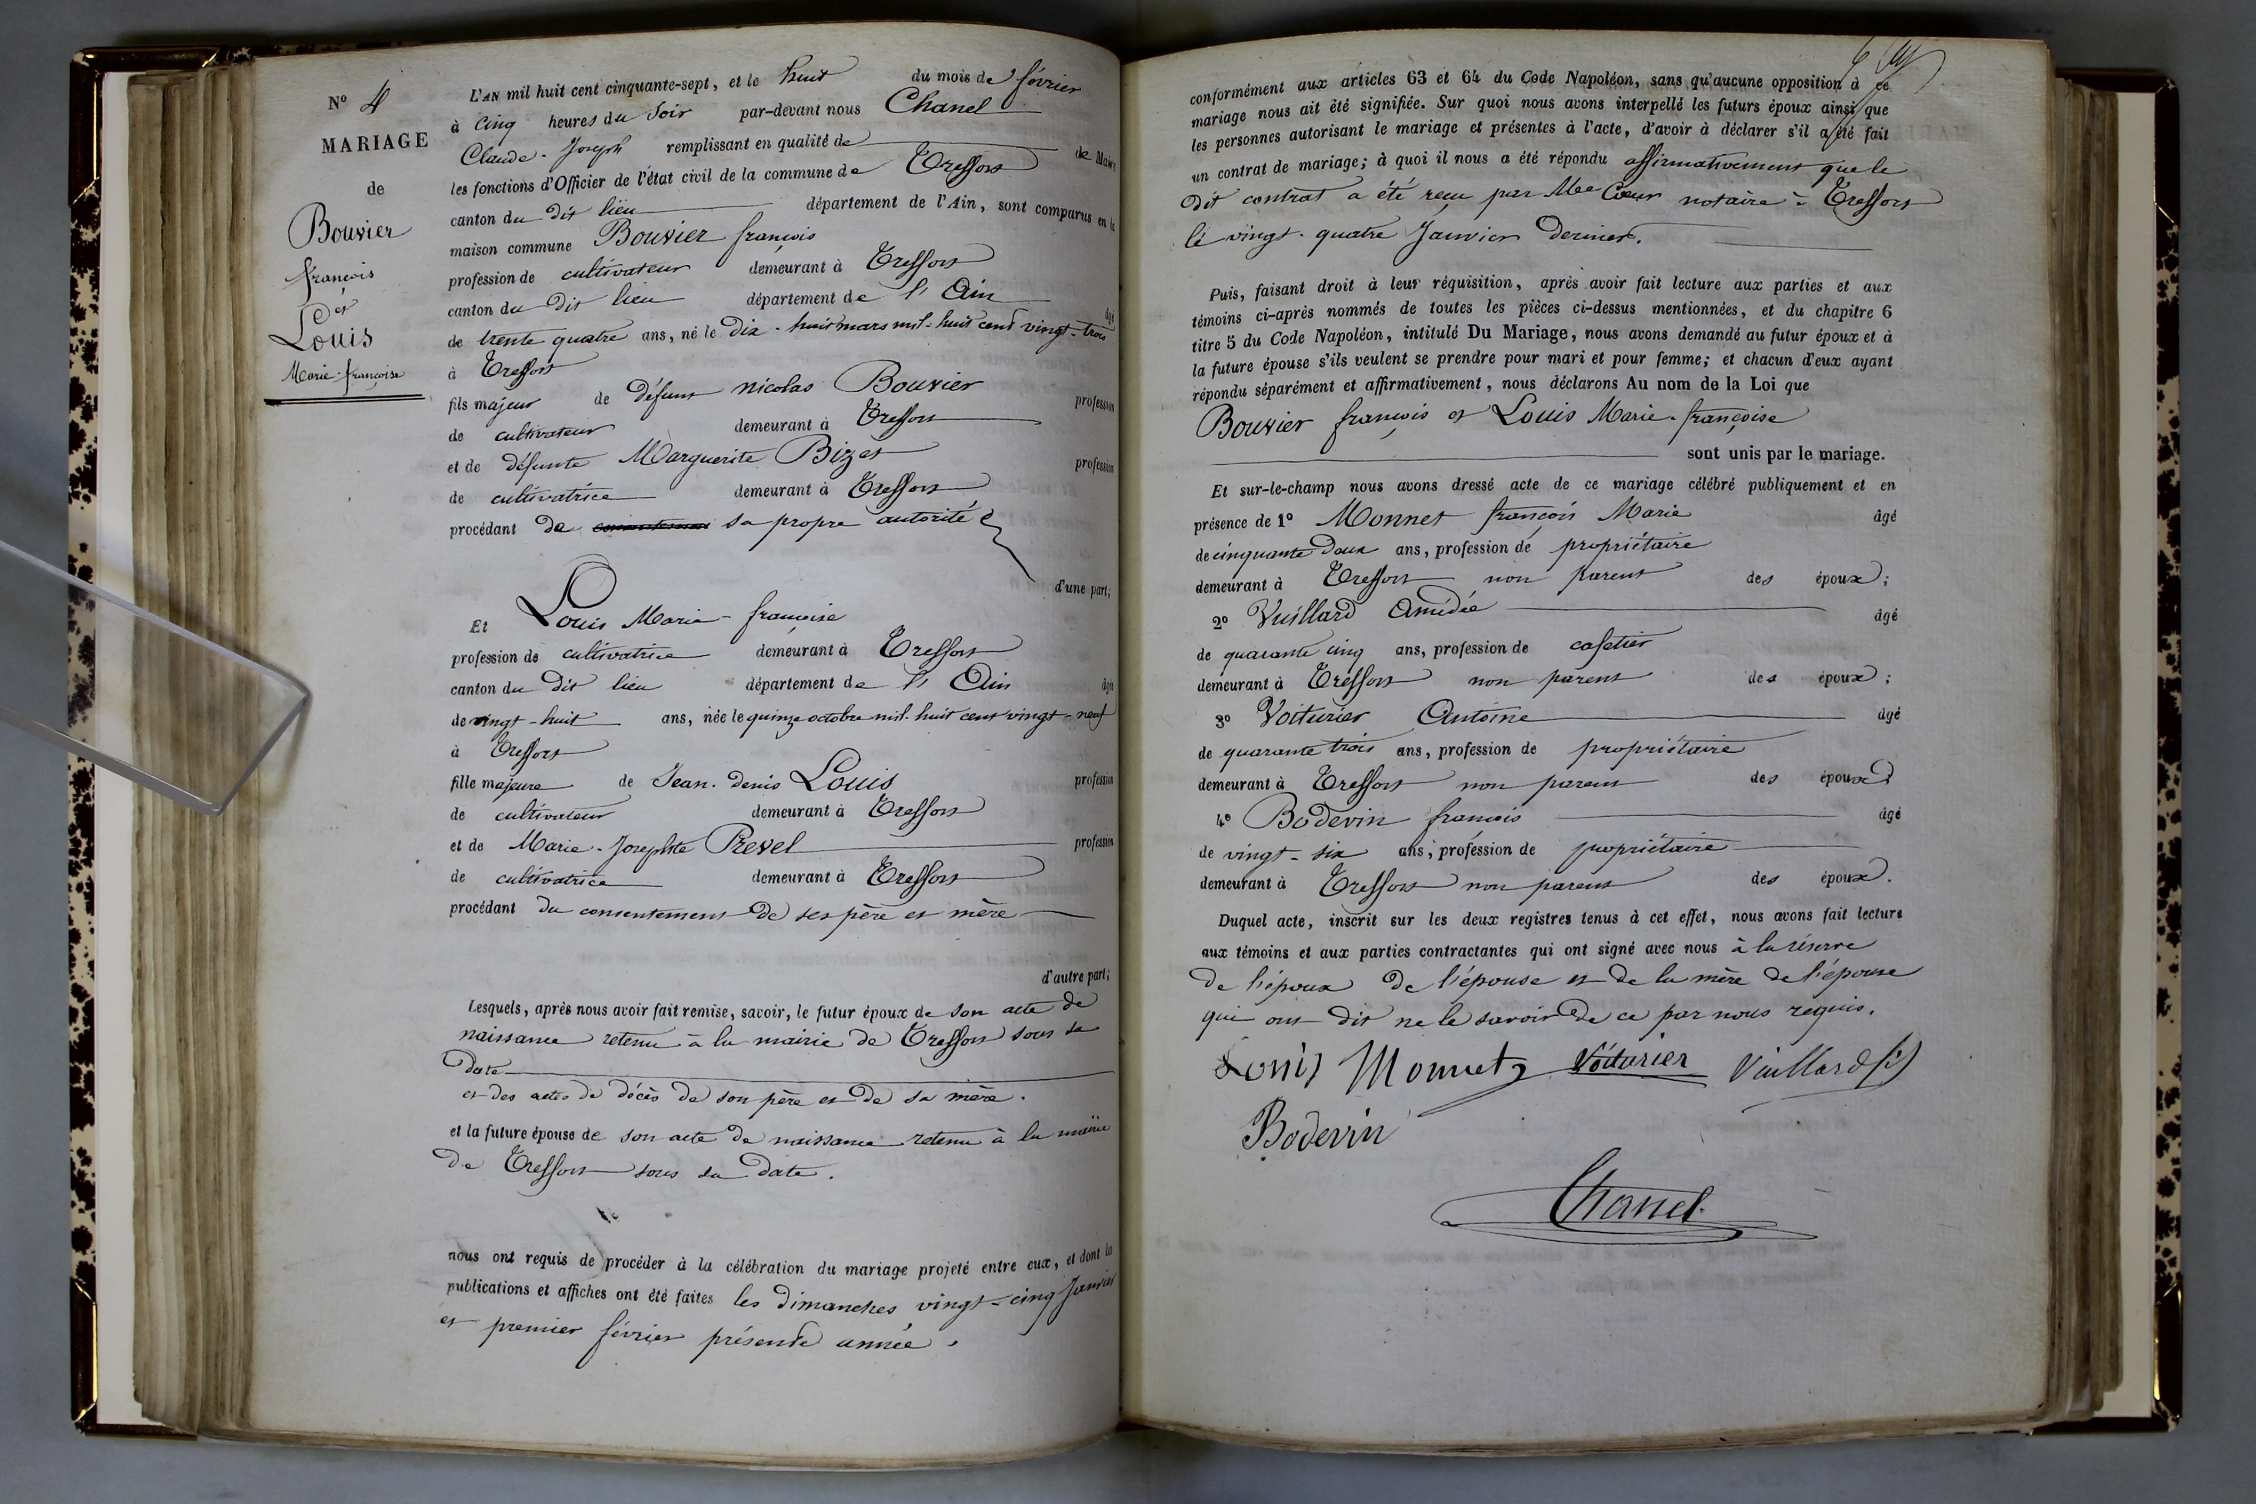 N° 4
MARIAGE
de
Bouvier
françois
et
Louis
Marie-françoise
L'AN mil huit cent cinquante-sept, et le huit du mois de février
à Cinq heures du Soir par-devant nous Chanel
Claude-Joseph remplissant en qualité de de Maire
les fonctions d'Officier de l'état civil de la commune de Treffort
canton du dit lieu département de l'Ain, sont comparus en la
maison commune Bouvier françois
profession de cultivateur demeurant à Treffort
canton du dit lieu département de l'Ain âgé
de trente quatre ans, né le dix-huit mars mil-huit cent vingt-trois
à Treffort
fils majeur de défunt nicolas Bouvier profession
de cultivateur demeurant à Treffort
et de défunte Marguerite Bizet profession
de cultivatrice demeurant à Treffort
procédant de sa propre autorité
d'une part;
Et Louis Marie-françoise
profession de cultivatrice demeurant à Treffort
canton du dit lieu département de l'Ain âgée
de vingt-huit ans, née le quinze octobre mil-huit cent vingt-neuf
à Treffort
fille majeure de Jean-denis Louis profession
de cultivateur demeurant à Treffort
et de Marie-Josephte Prevel profession
de cultivatrice demeurant à Treffort
procédant du consentement de ses père et mère
d'autre part;
Lesquels, après nous avoir fait remise, savoir, le futur époux de son acte de
naissance retenu à la mairie de Treffort sous sa
date
et des actes de décès de son père et de sa mère.
et la future épouse de son acte de naissance retenu à la mairie
de Treffort sous sa date.
nous ont requis de procéder à la célébration du mariage projeté entre eux, et dont les
publications et affiches ont été faites les dimanches vingt-cinq Janvier
et premier février présente année,
conformément aux articles 63 et 64 du Code Napoléon, sans qu'aucune opposition à ce
mariage nous ait été signifiée. Sur quoi nous avons interpellé les futurs époux ainsi que
les personnes autorisant le mariage et présentes à l'acte, d'avoir à déclarer s'il a été fait
un contrat de mariage; à quoi il nous a été répondu affirmativement que le
dit contrat a été reçu par Me Cœur notaire à Treffort
le vingt-quatre Janvier dernier.
Puis, faisant droit à leur réquisition, après avoir fait lecture aux parties et aux
témoins ci-après nommés de toutes les pièces ci-dessus mentionnées, et du chapitre 6
titre 5 du Code Napoléon, intitulé Du Mariage, nous avons demandé au futur époux et à
la future épouse s'ils veulent se prendre pour mari et pour femme; et chacun d'eux ayant
répondu séparément et affirmativement, nous déclarons Au nom de la Loi que
Bouvier françois et Louis Marie-françoise
sont unis par le mariage.
Et sur-le-champ nous avons dressé acte de ce mariage célébré publiquement et en
présence de 1° Monnet françois Marie âgé
de cinquante deux ans, profession de propriétaire
demeurant à Treffort non parent des époux;
2° Vuillard Amédée âgé
de quarante cinq ans, profession de cafetier
demeurant à Treffort non parent des époux;
3° Voiturier Antoine âgé
de quarante trois ans, profession de propriétaire
demeurant à Treffort non parent des époux;
4° Bodevin françois âgé
de vingt-six ans, profession de propriétaire
demeurant à Treffort non parent des époux.
Duquel acte, inscrit sur les deux registres tenus à cet effet, nous avons fait lecture
aux témoins et aux parties contractantes qui ont signé avec nous à la réserve
de l'époux de l'épouse et de la mère de l'épouse
qui ont dit ne le savoir de ce par nous requis.
Louis Monnet Voiturier Vuillard
Bodevin
Chanel